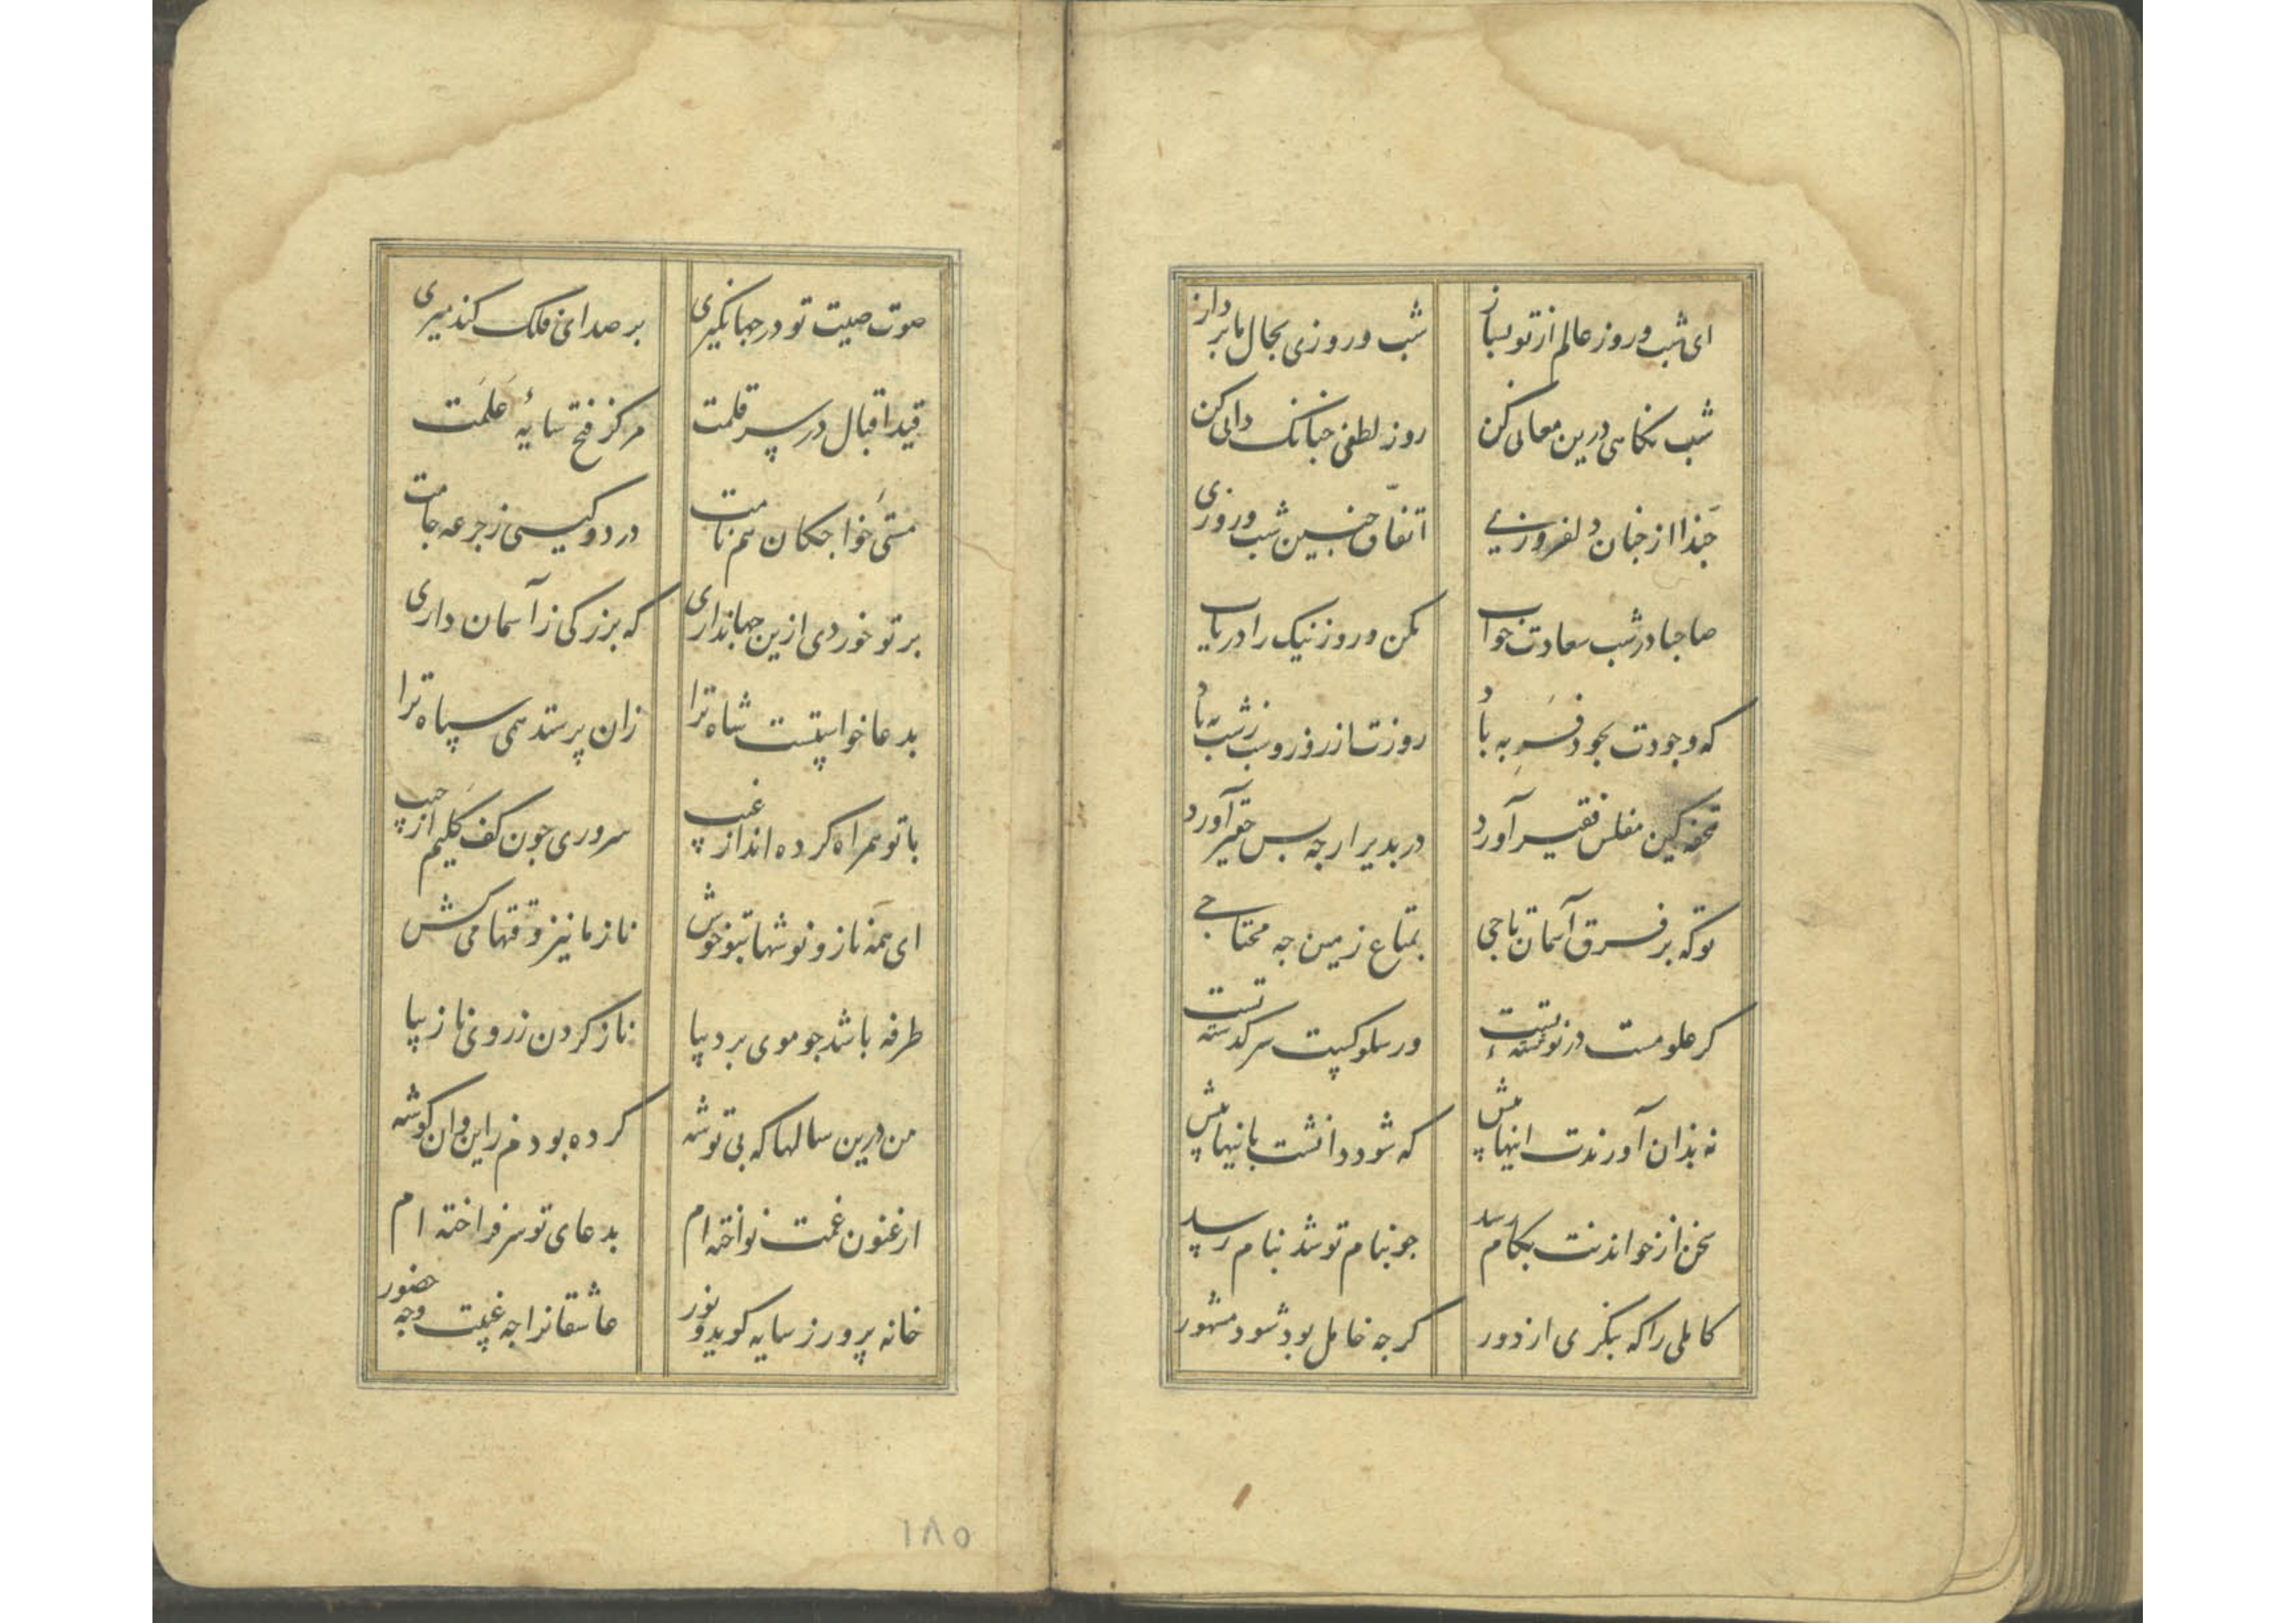 ای شب و روز عالم از تو بساز شب و روزی بحال ما پرداز
شب نکاهی درین معانی کن روز لطفی جنانک دانی کن
حبذا از جنان دلفروزیی اتفاق جنین شب و روزی
صاحبا در شب سعادت خواب مکن و روز نیک را دریاب
که وجودت بجود فربه باد روزت از روز و شب ز شب به باد
تحفه کین مفلس فقیر آورد در پذیر ارجه بس حقیر آورد
تو که بر فرق آسمان تاجی بمتاع زمین جه محتاجی
کر علومست در نوشته تست ور سلوکیست سر کذشته تست
نه بذان آورندت اینها پیش که شود دانشت باینها بیش
سخن از خواندنت بکام رسد جو بنام تو شد بنام رسید
کاملی را که بنکری از دور کرجه خامل بود شود مشهور
صوت صیت تو در جهانکیری بر صدای فلک کند میری
قید اقبال در سر قلمت مرکز فتح سایهٔ علمت
مستی خواجکان هم نامت دردو کیسی ز جرعه جامت
بر تو خوردی ازین جهانداری که بزرکی ز آسمان داری
بدعا خواستست شاه ترا زان پرستد همی سپاه ترا
با تو همراه کرده اند از غیب سروری جون کف کلیم از جیب
ای همه ناز و نوشها بتو خوش ناز ما نیز وقتها می کش
طرفه باشد جو موی بر دیبا ناز کردن ز روی نازیبا
من درین سالها که بی توشه کرده بودم زاین و ان کوشه
ارغنون غمت نواخته ام بدعای تو سر فراخته ام
خانه پرور ز سایه کوید و نور عاشقانرا جه غیبت وجه حضور
۱۸۵